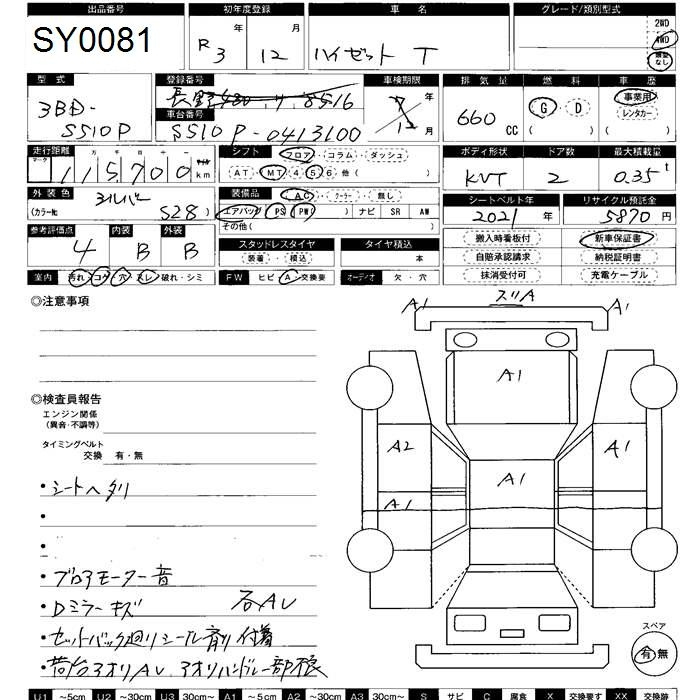 出品番号 初年度登録 車名 グレード/類別型式
SY0081 R3年 12月 ハイゼット T 2WD
4WD
類型なし
型式 登録番号 車検期限 排気量 燃料 車歴
3BD- 年 660cc G・D 事業用
S510P 車台番号 12月 ( ) レンタカー
S510P-0413100 ( )
走行距離 シフト フロア・コラム・ダッシュ ボディ形状 ドア数 最大積載量
マーク 十万千百十一 マイル
115700km AT・MT 4 5.6 他( ) KVT 2 0.35t
外装色 シルバー 装備品 AC・クーラー・無し シートベルト年 リサイクル預託金
(カラーNo. S28) エアバッグ PS PW( ) ナビ SR AW 2021年 5870円
その他( )
参考評価点 内装 外装 スタッドレスタイヤ タイヤ積込 搬入時看板付 新車保証書
4 B B 装着・積込 本 自賠承認請求 納税証明書
室内 汚れ・コゲ・穴・スレ・破れ・シミ FW ヒビ・A・交換要 オーディオ 欠・穴 抹消受付可 充電ケーブル
◎注意事項
A1 スリA A1
A1
◎検査員報告
エンジン関係
(異音・不調等)
タイミングベルト
交換 有・無
A2 A1 A1
A1
・シートヘタリ
・ブロアモーター音
・Dミラーキズ 右AU
・セットバック廻りシール剤付着
・荷台アオリAU アオリハンドル一部
スペア
有 無
U1 ~5cm U2 ~30cm U3 30cm~ A1 ~5cm A2 ~30cm A3 30cm~ S サビ C 腐食 X 交換要す XX 交換跡